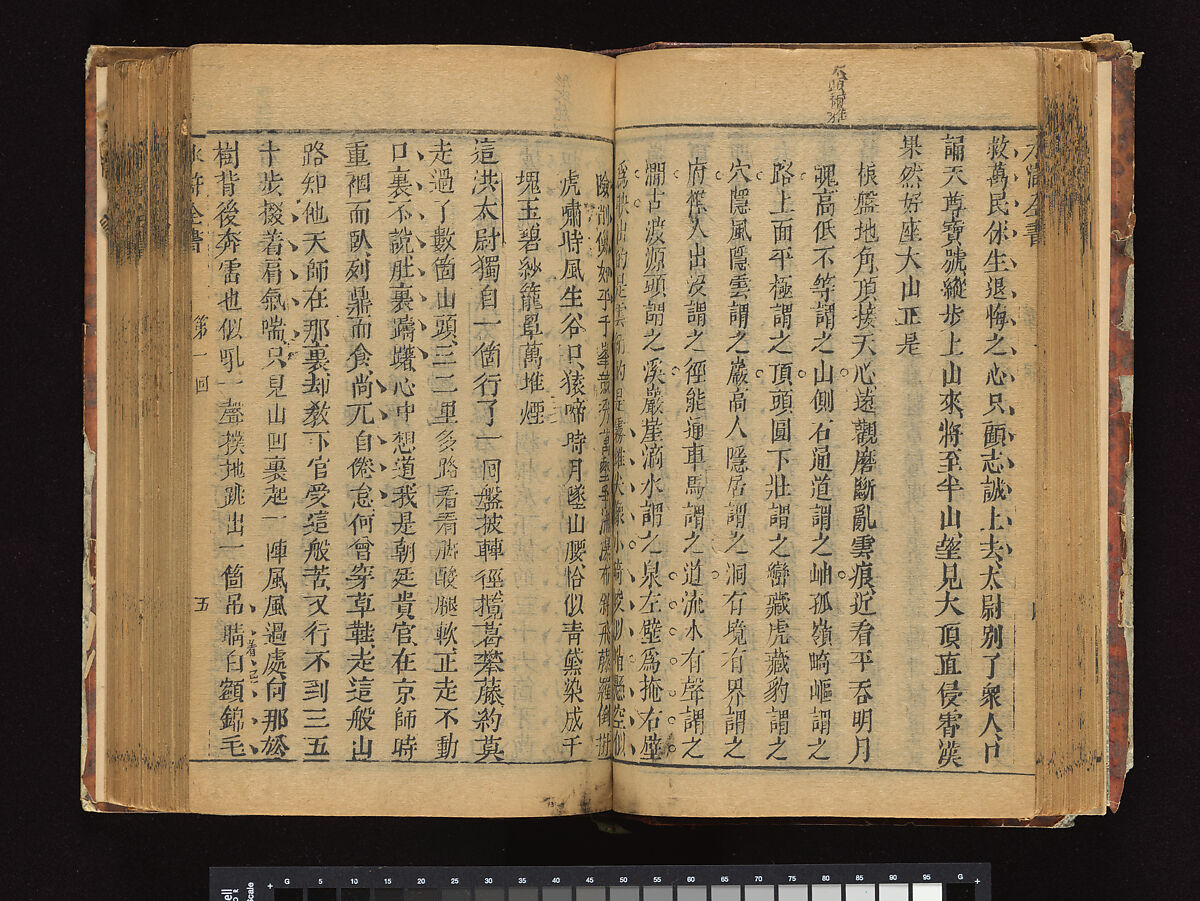 爾雅
救萬民休生退悔之心只顧志誠上去太尉別了衆人口
誦天尊寶號縱步上山來將至半山望見大頂直侵霄漢
果然好座大山正是
根盤地角頂接天心遠觀磨斷亂雲痕近看平吞明月
魄高低不等謂之山側石通道謂之岫孤嶺崎嶇謂之
路上面平極謂之頂頭圓下壯謂之巒藏虎藏豹謂之
穴隱風隱雲謂之巖高人隱居謂之洞有境有界謂之
府樵人出沒謂之徑能通車馬謂之道流水有聲謂之
澗古渡源頭謂之溪巖崖滴水謂之泉左壁爲掩右壁
爲映出的是雲納的是霧錐尖像小崎峻似峭懸空似
險削儀如平千峯競秀萬壑爭流瀑布斜飛藤蘿倒掛
虎嘯時風生谷口猿啼時月墜山腰恰似青黛染成千
塊玉碧紗籠罩萬堆煙
這洪太尉獨自一箇行了一囘盤坡轉徑攬葛攀藤約莫
走過了數箇山頭三二里多路看看脚酸腿軟正走不動
口裏不說肚裏躊躇心中想道我是朝廷貴官在京師時
重裀而臥列鼎而食尚兀自倦怠何曾穿草鞋走這般山
路知他天師在那裏却教下官受這般苦又行不到三五
十步掇着肩氣喘只見山凹裏起一陣風風過處向那松
樹背後奔雷也似吼一聲撲地跳出一箇吊睛白額錦毛
水滸全書 第一回 五